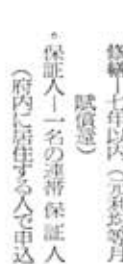 修繕―七年以内（元利均等月
賦償還）
。保証人―一名の連帯保証人
（府内に居住する人で申込